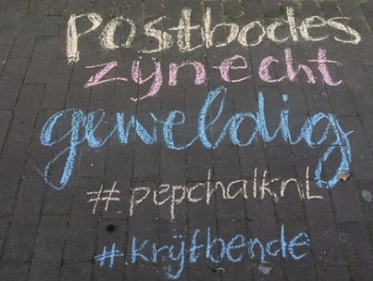 Postbodes
zijn echt
geweldig
#pepchalknl
#krijtbende